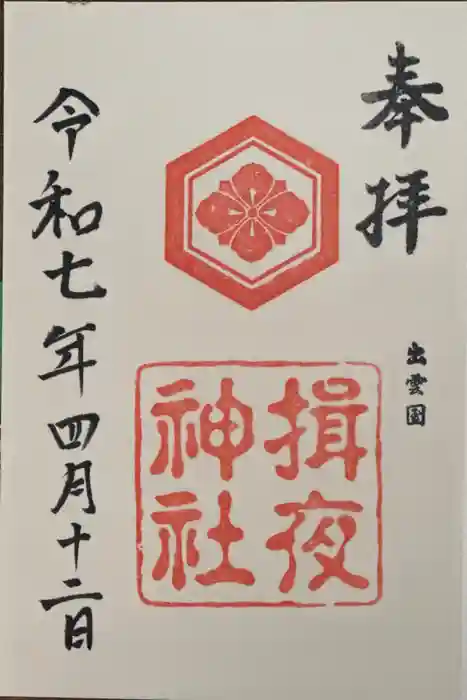 奉拝
出雲国
揖夜
神社
令和七年四月十二日